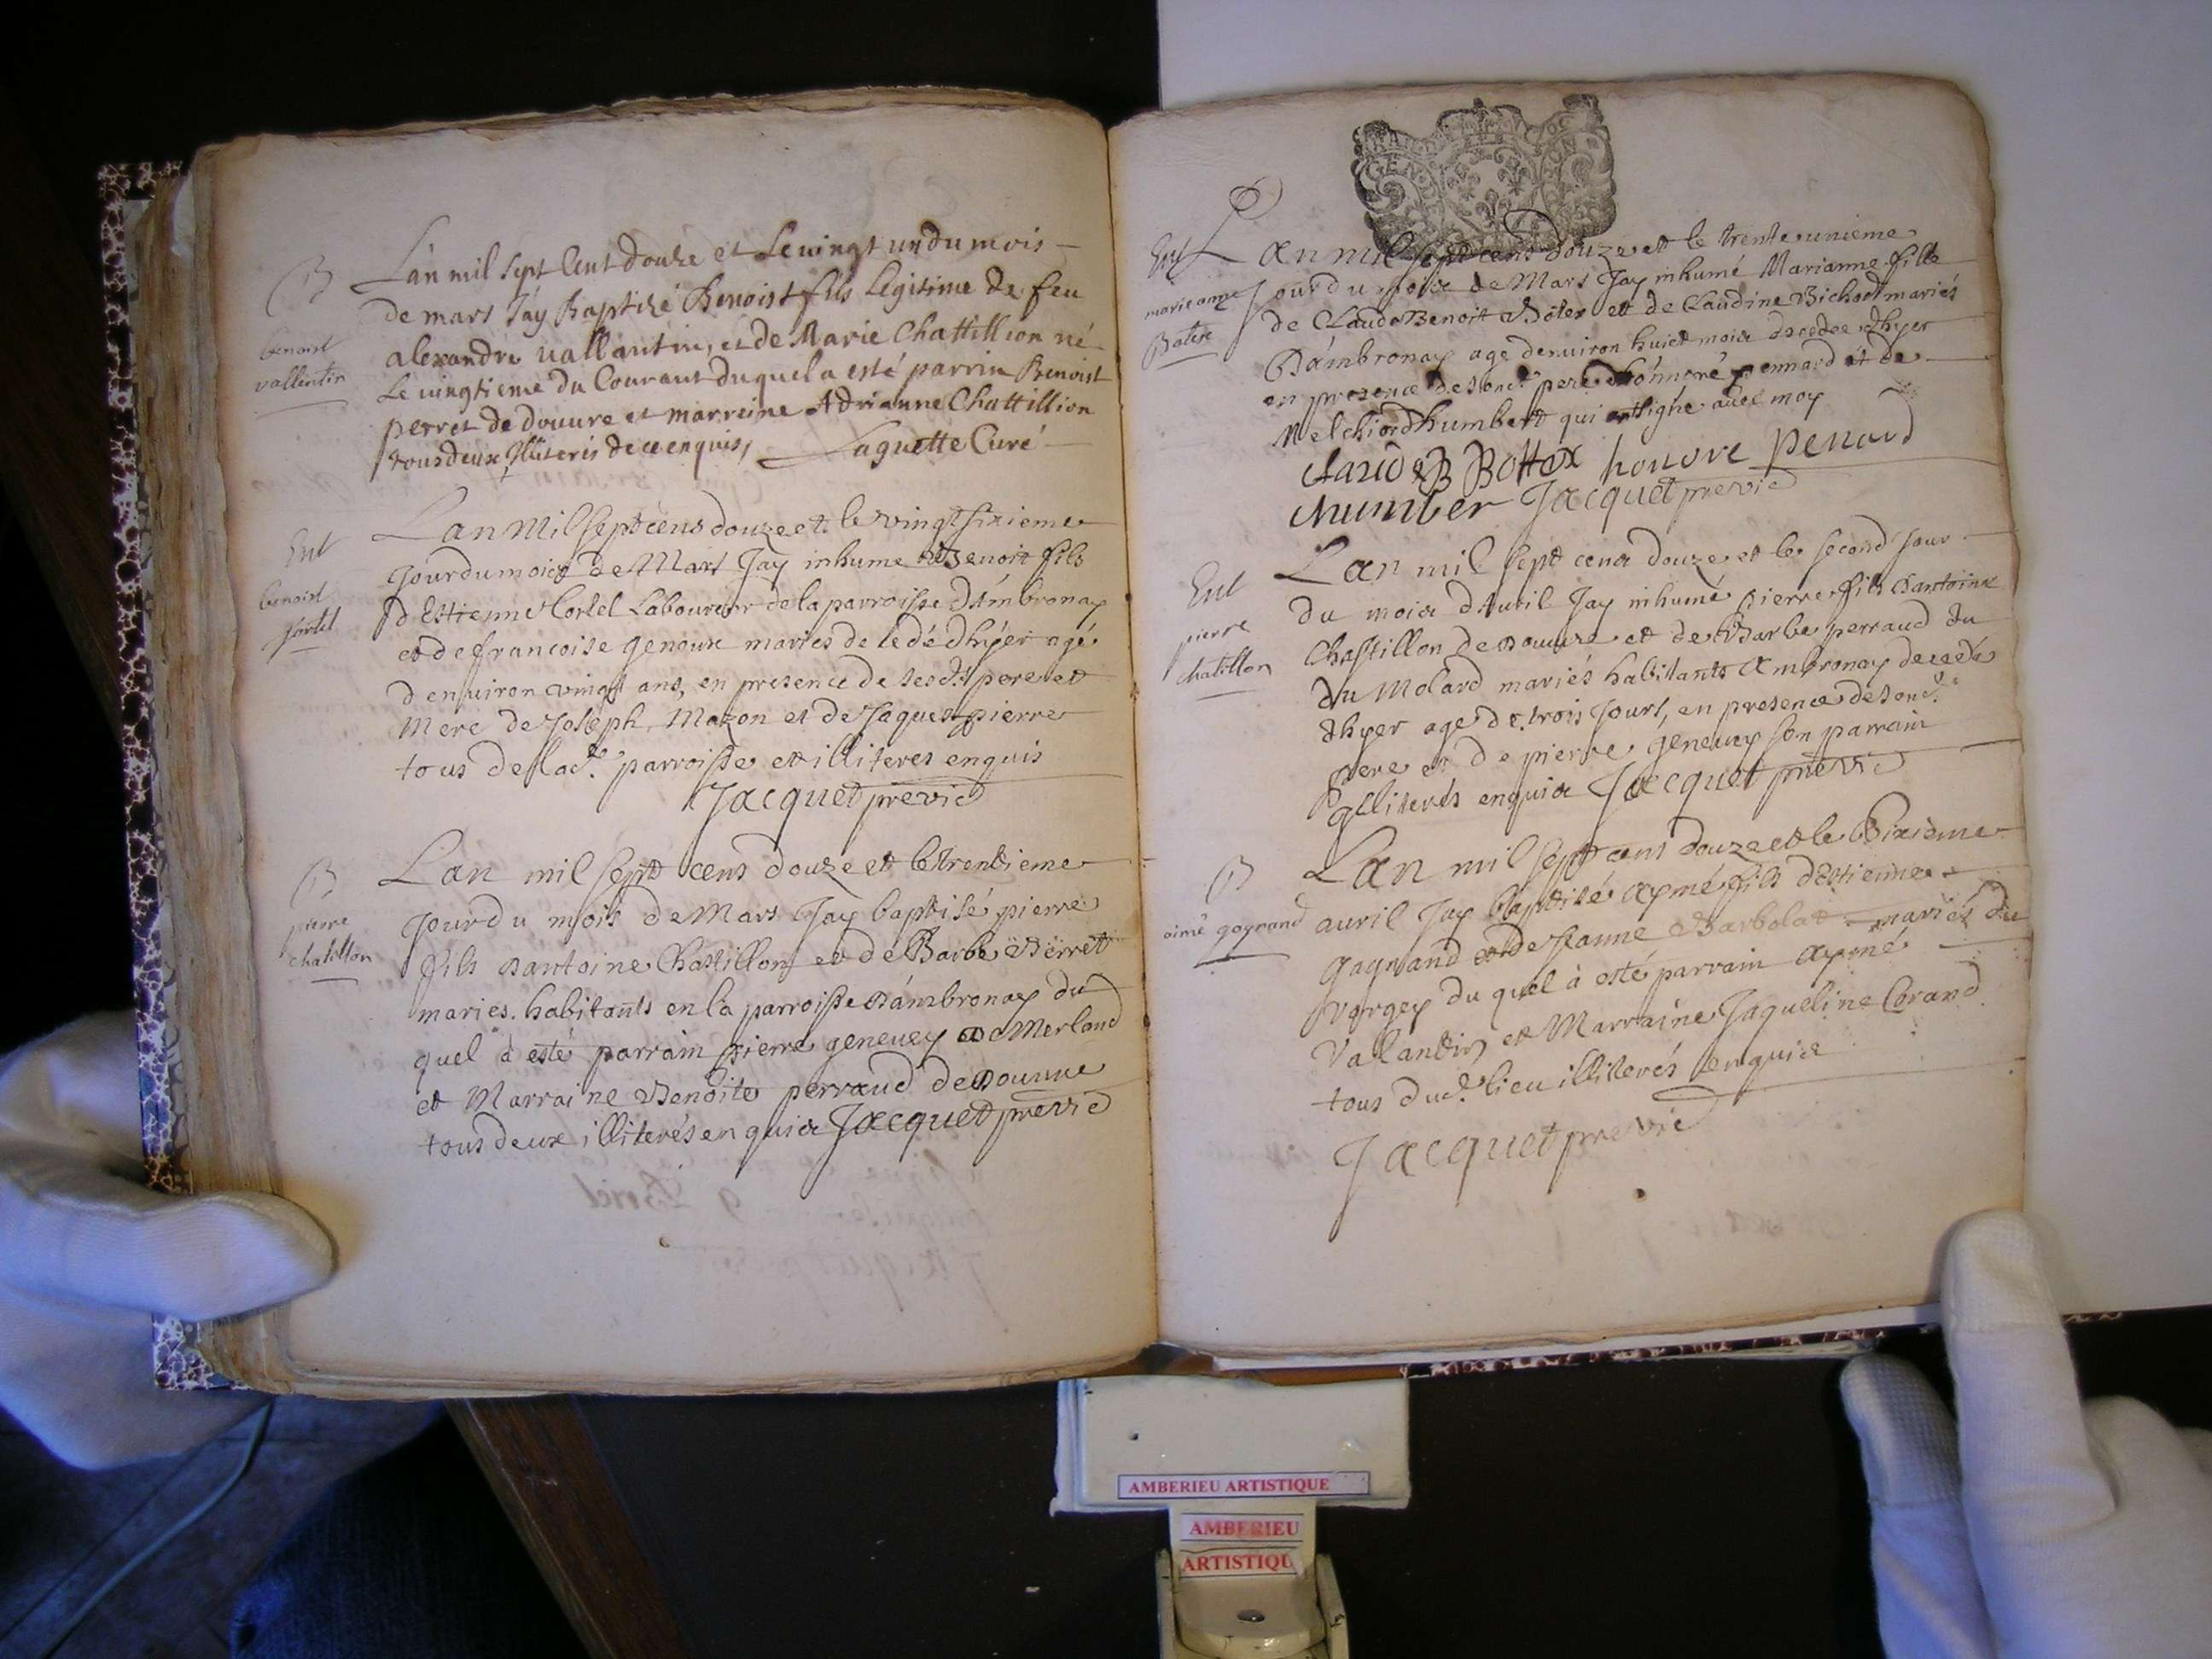 B
benoist
vallentin
L'an mil sept Cent douze et Le vingt un du mois
de mars Jáy Baptizé Benoist fils Legitime de feu
alexandre vallantin, et de Marie Chattillion né
Le vingtieme du Courant duquel a esté parrin Benoist
perret de douure et marreine Adrianne Chattillion
tous deux Illiteris de ce enquis, Laguette Curé
Ent
benoist
Lan Mil sept cens douze et le vingt sixieme
Jour du moies de Mars Jay inhume Benoit fils
d Estienne Cortel Laboureur de la parroisse d'Ambronay
et de francoise genoux mariés decedé dhyer agé
d enuiron vingt ans, en presence de sesdts pere et
Mere de Joseph Mazon et de Jaques pierre
tous de lade parroisse et illiteres enquis
Jacquet previc
B
pierre
chatillon
Lan mil sept cens douze et le trentieme
Jour du mois de Mars Jay baptisé pierre
fils dantoine Chastillon et de Barbe Perret
mariés habitants en la parroisse d'ámbronay du
quel à esté parrain pierre geneuey de Merland
et Marraine Benoite perraud de douure
tous deux illiterés enquis Jacquet previc
GEN
Ent
marieanne
Botex
Lan mil sept cens douze et le trente unieme
Jour du mois de Mars Jay inhumé Marianne fille
de Claude Benoit Botex et de Claudine Bichod mariés
D'ámbronay age denuiron huict mois decedee dhyer
en presence de sond. pere d'honnoré pennard et de
Melchiord humbert qui ont signé auec moy
claude B Bottex honore penard
mumber Jacquet previc
Ent
pierre
chatillon
Lan mil sept cens douze et le second Jour
du mois d'Auril Jay inhumé pierre fils d'antoine
Chastillon de douure et de Barbe perraud du
du Molard mariés habitants Ambronay decedé
dhyer age de trois Jours, en presence de sond.
pere et de pierre geneuey son parrain
Jlliterés enquis Jacquet previc
B
aimé gagnand
Lan mil sept cens douze et le Sixieme
auril Jay baptisé aymé fils destienne
gagnand et de Jeanne Barbolat mariés du
vorgey du quel à esté parrain aymé
Valantin et Marraine Jaqueline Corand
tous dud. lieu illiterés enquis
Jacquet previc
AMBERIEU ARTISTIQUE
AMBERIEU
ARTISTIQU